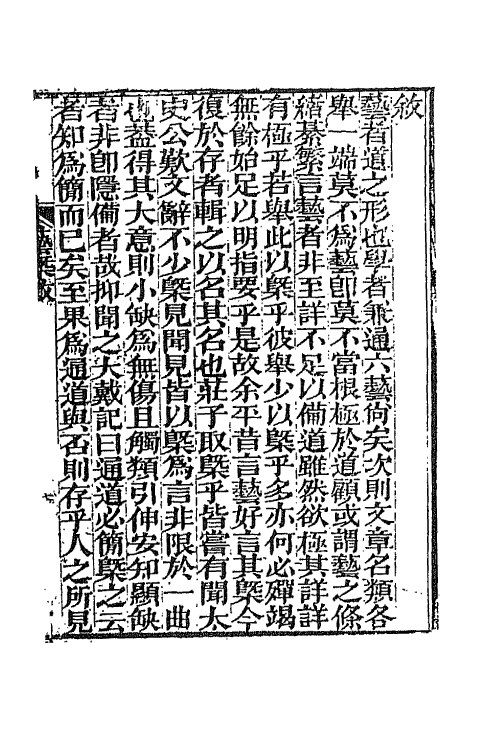 敘
藝者道之形也學者兼通六藝尚矣次則文章名類各
舉一端莫不為藝卽莫不當根極於道顧或謂藝之條
緒綦繁言藝者非至詳不足以備道雖然欲極其詳詳
有極乎若舉此以槩乎彼舉少以槩乎多亦何必殫竭
無餘始足以明指要乎是故余平昔言藝好言其槩今
復於存者輯之以名其名也莊子取槩乎皆嘗有聞太
史公歎文辭不少槩見聞見皆以槩為言非限於一曲
也葢得其大意則小缺為無傷且觸類引伸安知顯缺
者非卽隱備者哉抑聞之大戴記曰通道必簡槩之云
者知為簡而已矣至果為通道與否則存乎人之所見
藝槩敘